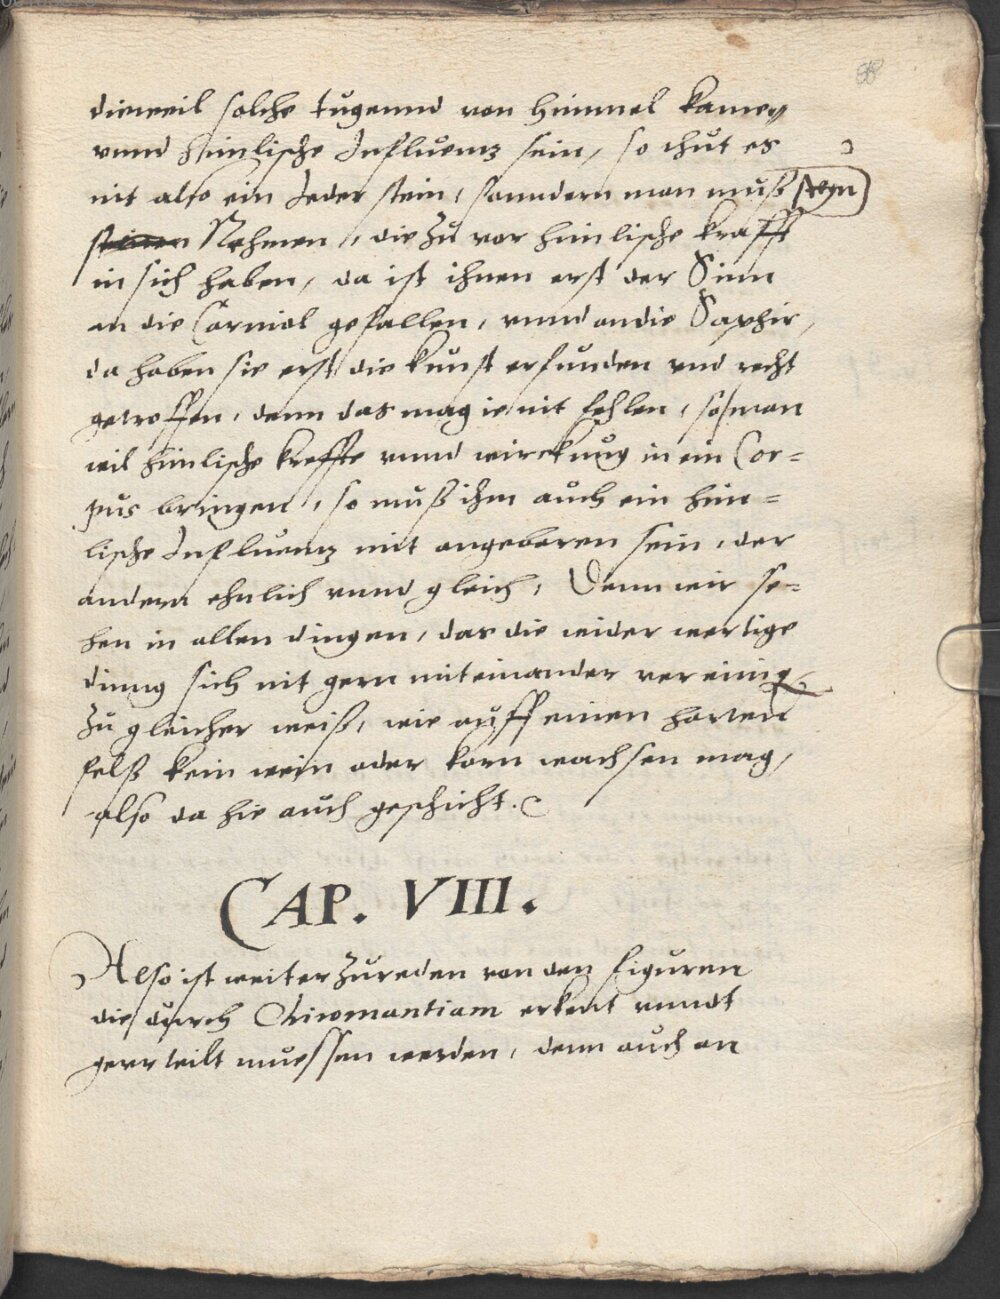 dieweil solche tugennd von himmel kamen
vnnd himlische Influenz sein, so thut es
nit also ein Jeder stein, sonndern man muß steyn
Nehmen, die zu vor himlische krafft
in sich haben, da ist ihnen erst der Sinn
an die Corniol gefallen, vnnd an die Saphir,
da haben sie erst die kunst erfunden vnd recht
getroffen, denn das mag ie nit fehlen, so man
wil himlische kreffte vnnd wirckung in ein Cor=
pus bringen, so muß ihm auch ein him=
lische Influenz mit angeboren sein, der
andern ehnlich vnnd gleich, Denn wir se=
hen in allen dingen, das die wider wertige
dinng sich nit gern mit einander vereinig
zu gleicher weiß, wie auff einen harten
felß kein wein oder korn wachsen mag,
also da hie auch geschicht.
CAP. VIII.
Also ist weiter zu reden von den figuren
die durch Chiromantiam erkent vnndt
gevrteilt muessen werden, denn auch an